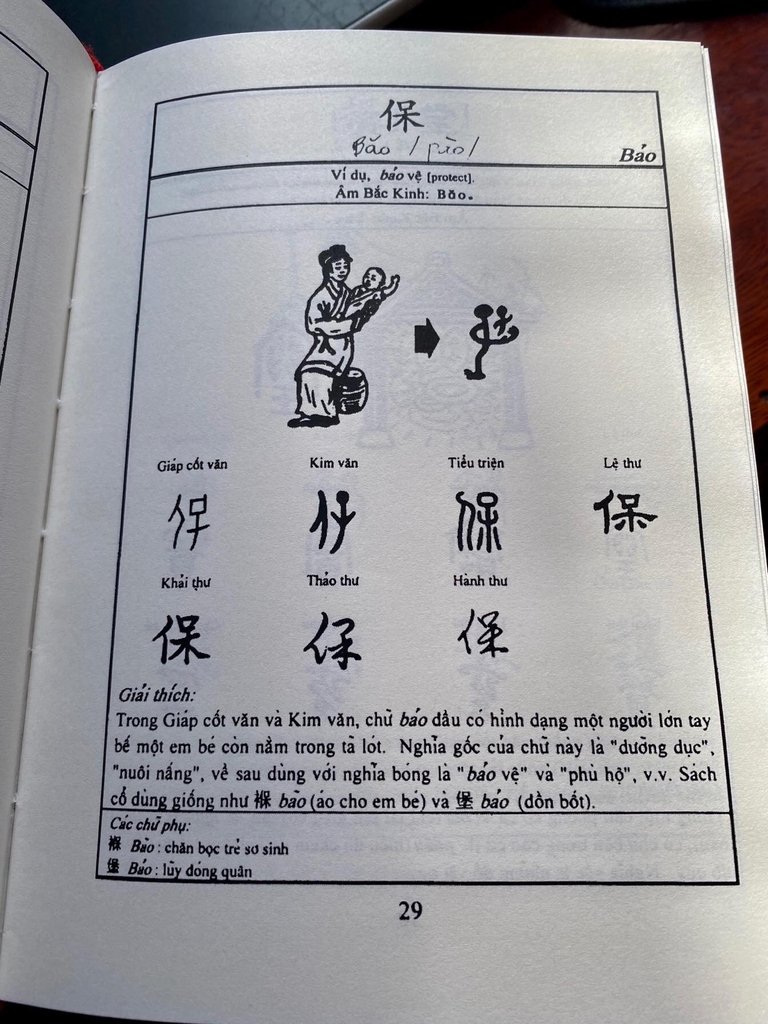 保
Bǎo
Bảo
Ví dụ, bảo vệ [protect].
Âm Bắc Kinh: Bǎo.
Giáp cốt văn Kim văn Tiểu triện Lệ thư
保 保 保 保
Khải thư Thảo thư Hành thư
保 保 保
Giải thích:
Trong Giáp cốt văn và Kim văn, chữ bảo đầu có hình dạng một người lớn tay
bế một em bé còn nằm trong tã lót. Nghĩa gốc của chữ này là "dưỡng dục",
"nuôi nấng", về sau dùng với nghĩa bóng là "bảo vệ" và "phù hộ", v.v. Sách
cổ dùng giống như 褓 bảo (áo cho em bé) và 堡 bảo (đồn bốt).
Các chữ phụ:
褓 Bảo : chăn bọc trẻ sơ sinh
堡 Bảo : lũy đóng quân
29